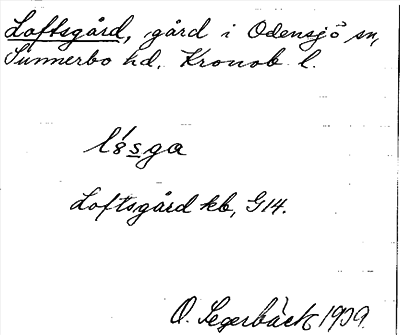 Loftsgård, gård i Odensjö sn,
Sunnerbo hd. Kronob. l.
Loftsgård kb, G14.
O. Segerbäck 1909.